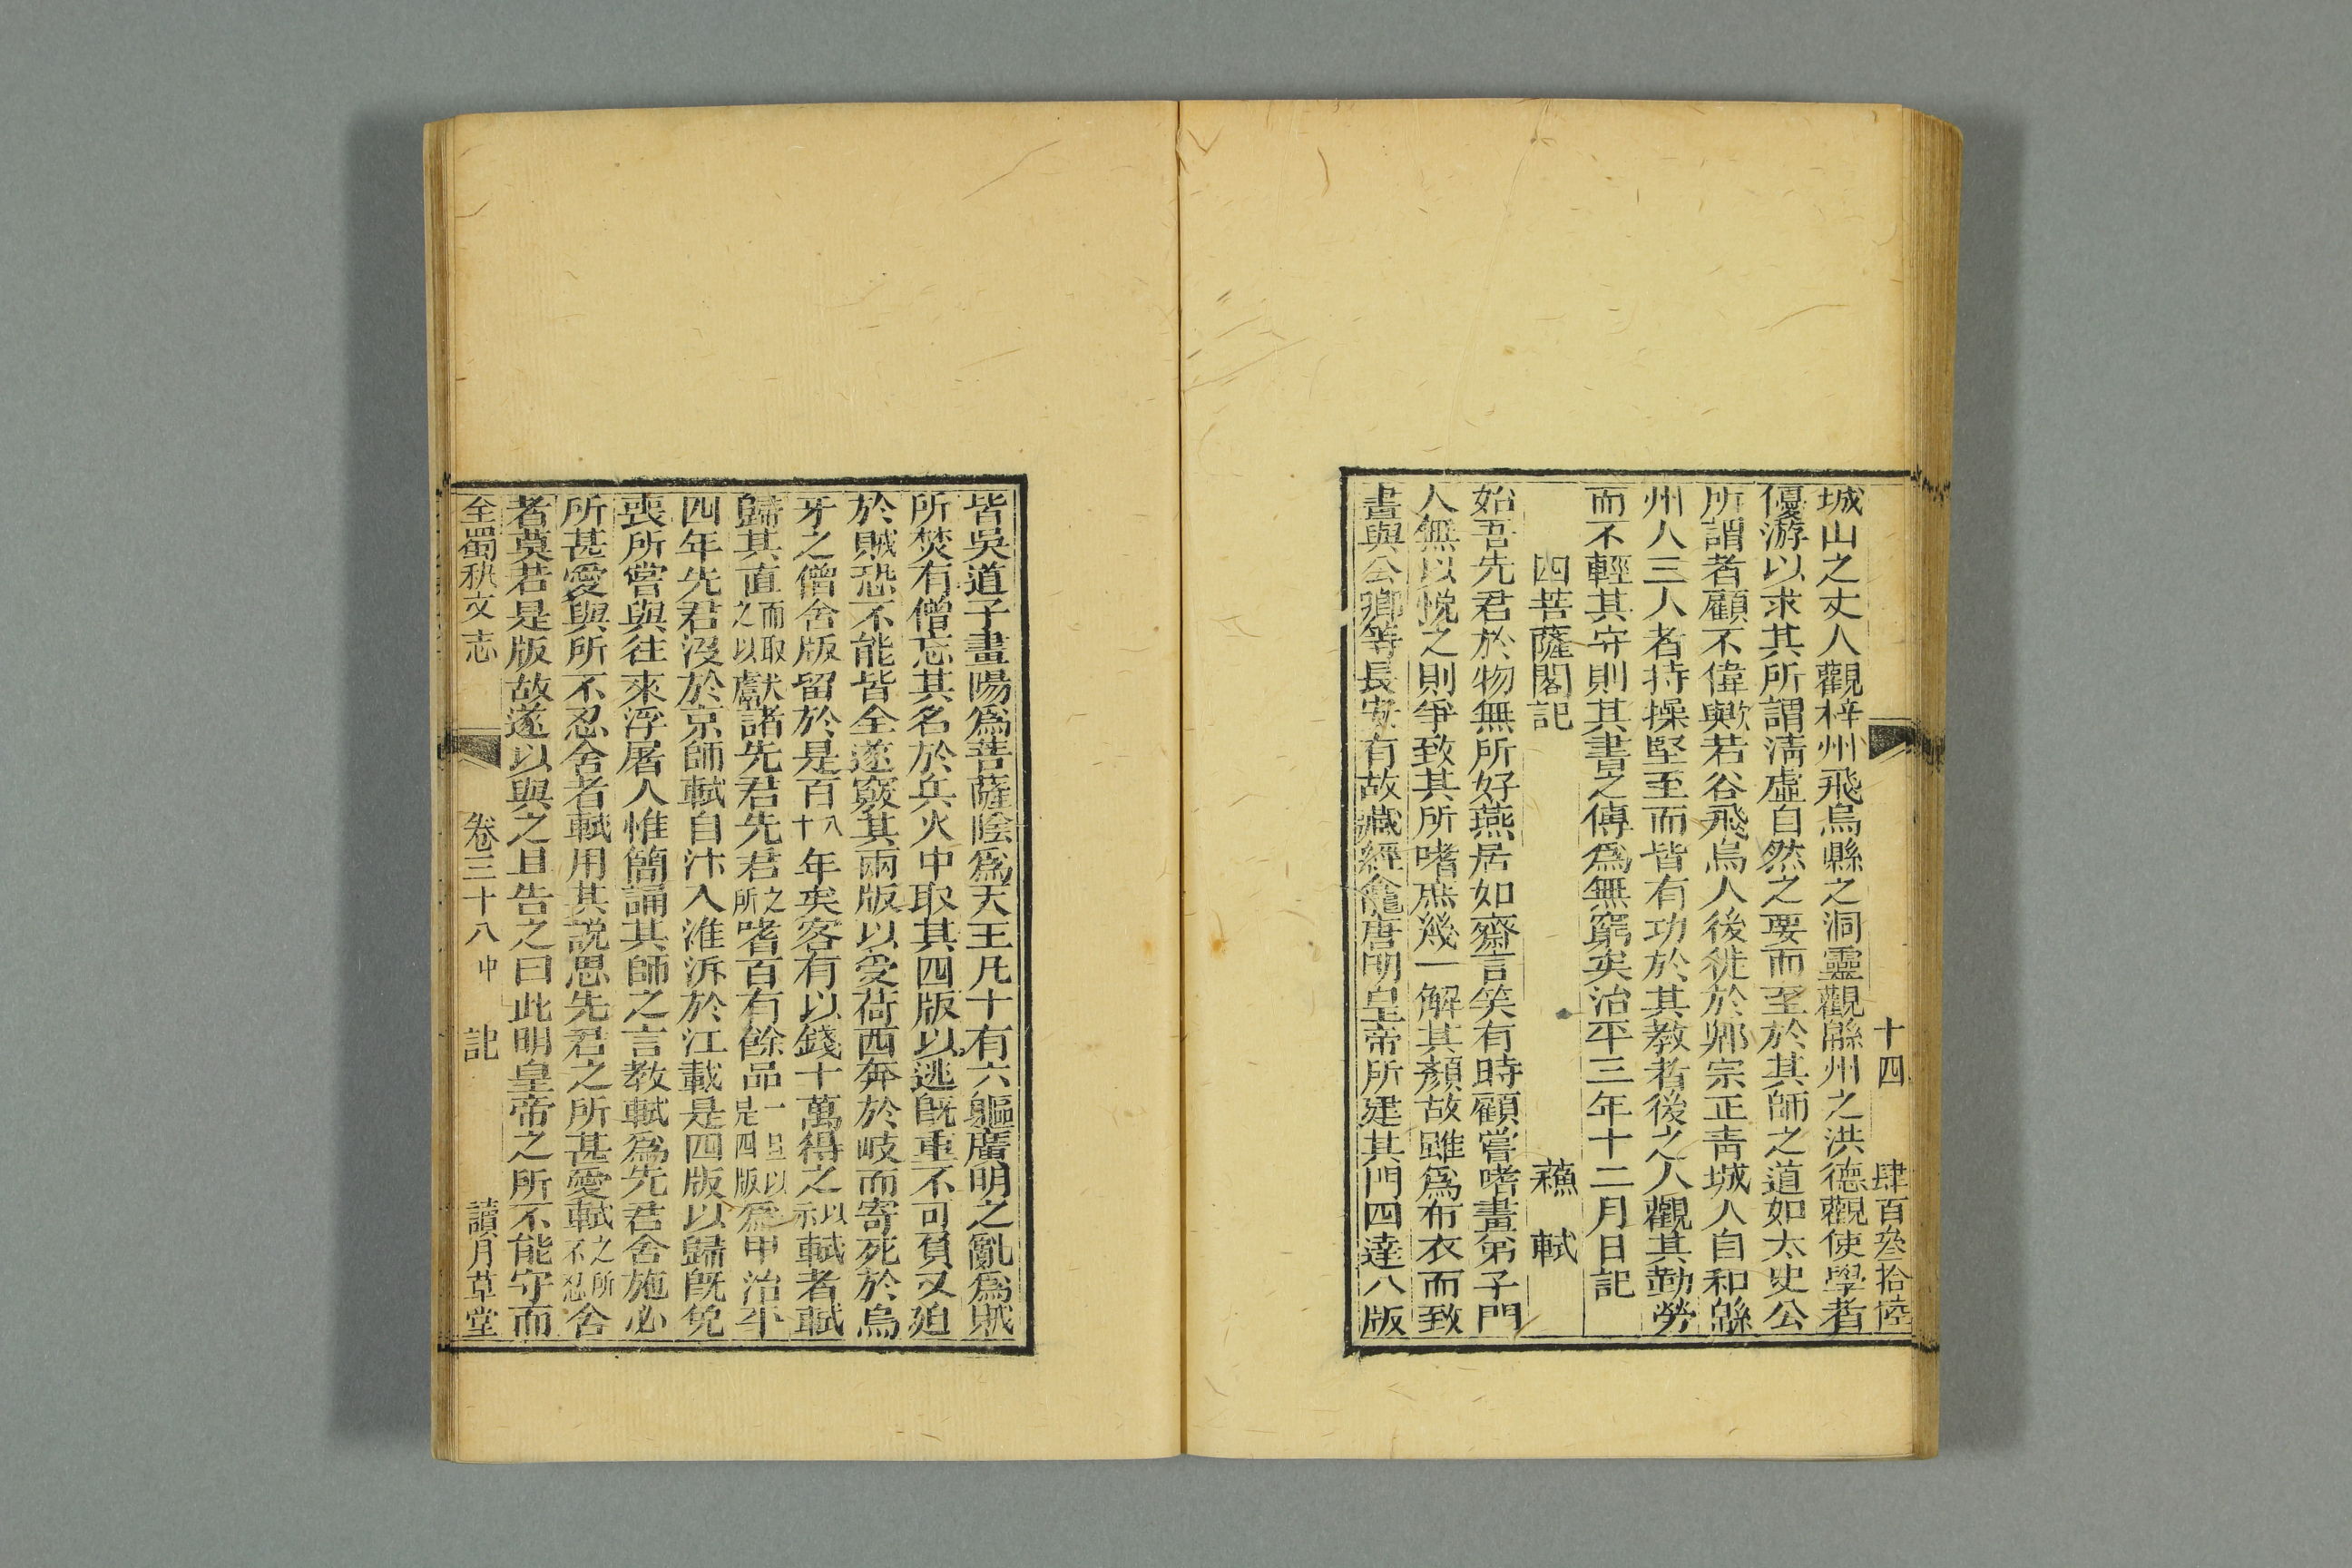 十四　肆百叁拾陸
城山之丈人觀梓州飛烏縣之洞靈觀緜州之洪德觀使學者
優游以求其所謂淸虛自然之要而至於其師之道如太史公
所謂者顧不偉歟若谷飛烏人後徙於郫宗正靑城人自和緜
州人三人者持操堅至而皆有功於其教者後之人觀其勤勞
而不輕其守則其書之傳爲無窮矣治平三年十二月日記
四菩薩閣記　蘇軾
始吾先君於物無所好燕居如齋言笑有時顧嘗嗜畫弟子門
人無以悅之則爭致其所嗜庶幾一解其顏故雖爲布衣而致
畫與公卿等長安有故藏經龕唐明皇帝所建其門四達八版
皆吳道子畫陽爲菩薩陰爲天王凡十有六軀廣明之亂爲賊
所焚有僧忘其名於兵火中取其四版以逃旣重不可負又迫
於賊恐不能皆全遂竅其兩版以受荷西奔於岐而寄死於烏
牙之僧舍版留於是百八十年矣客有以錢十萬得之以示軾者軾
歸其直而取之以獻諸先君先君之所嗜百有餘品一旦以是四版爲甲治平
四年先君沒於京師軾自汴入淮泝於江載是四版以歸旣免
喪所嘗與往來浮屠人惟簡誦其師之言教軾爲先君舍施必
所甚愛與所不忍舍者軾用其說思先君之所甚愛軾之所不忍舍
者莫若是版故遂以與之且告之曰此明皇帝之所不能守而
全蜀秇文志　卷三十八中　記　讀月草堂